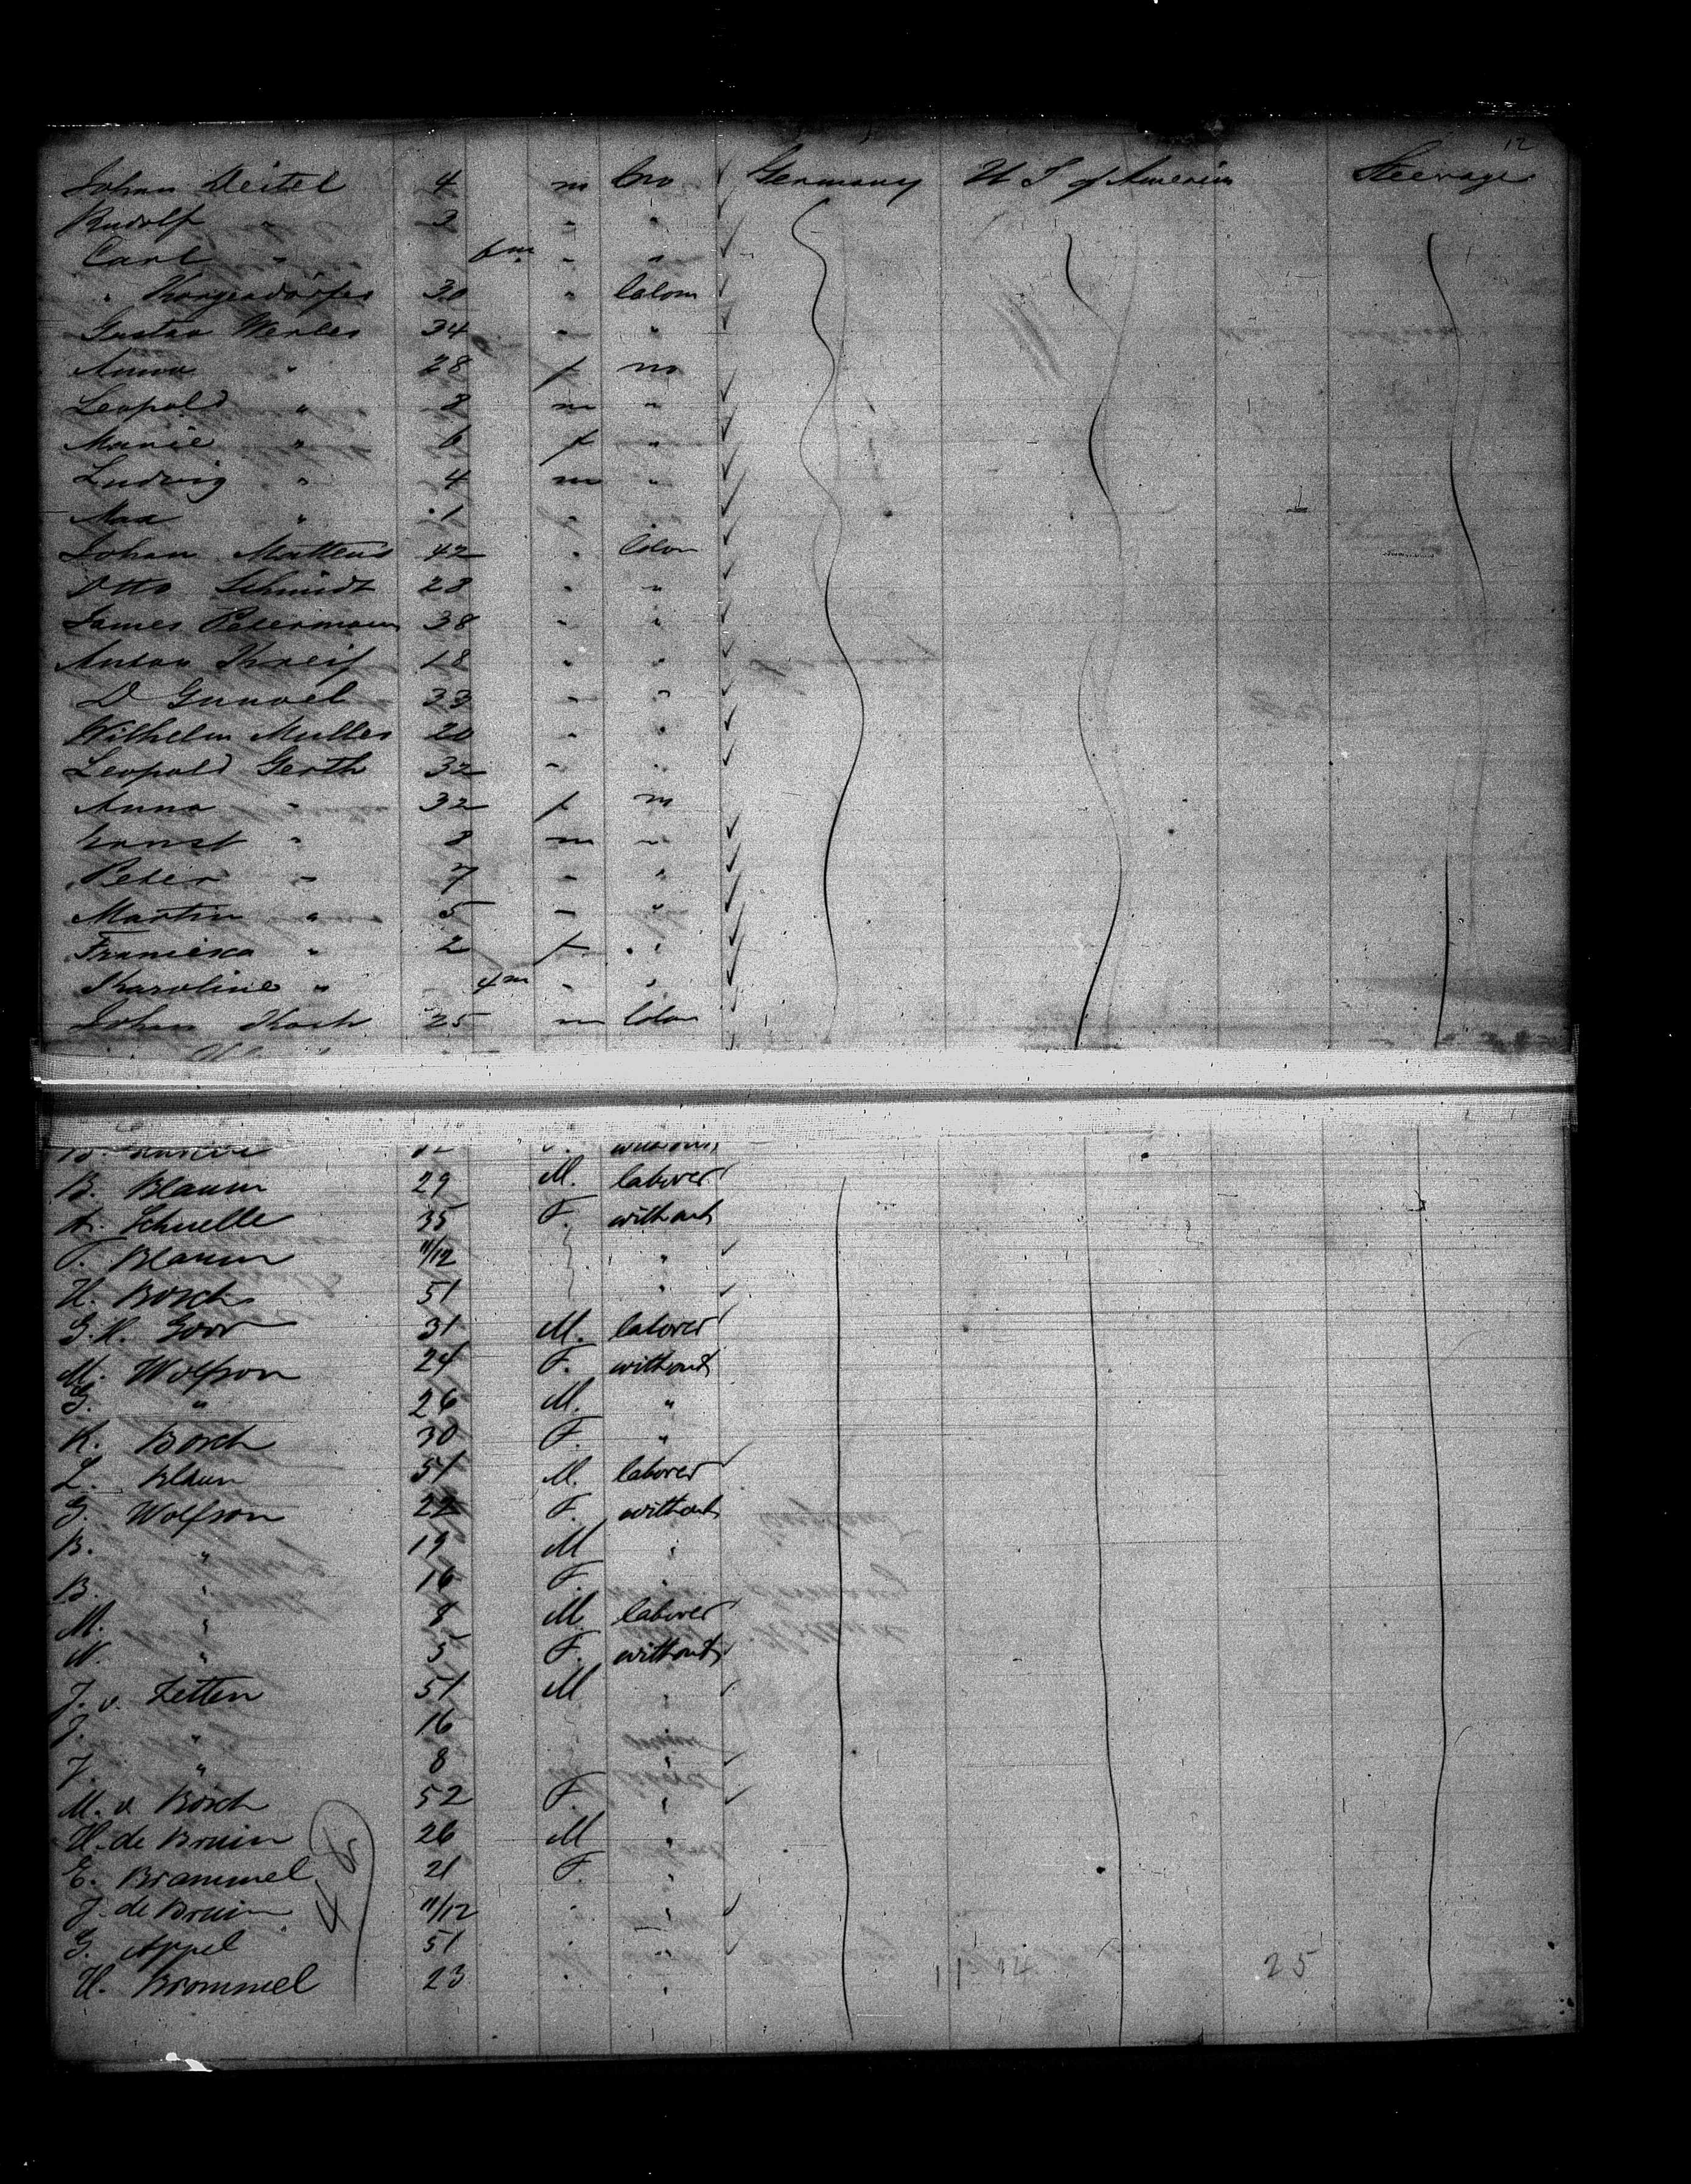 12
Johan Deitel 4 m no Germany U S of America Steerage
Rudolf " 3 " "
Carl " 6m " "
" 30 " Labom
Gustav Werles 34 " "
Anna " 28 f no
Leopold " 8 m "
Marie " 6 f "
Ludwig " 4 m "
Max " 1 " "
Johan Mattens 42 " Labom
Otto Schmidt 28 " "
James Petermann 38 " "
Anton Kneif 18 " "
D Gunvel 33 " "
Wilhelm Muller 20 " "
Leopold Gerth 32 " "
Anna " 32 f no
Ernst " 8 m "
Peter " 7 " "
Martin " 5 " "
Francisca " 2 f "
Karoline " 4m " "
Johan Koch 25 m Labom
without
B. Blaum 29 M. laborer
A. Schnelle 35 F. without
F. Blaum 11/12 "
H. Bosch 51 "
G.K. Goor 31 M. laborer
M. Wolfson 24 F. without
G. " 26 M. "
K. Bosch 30 F. "
L. Blaum 51 M. laborer
G. Wolfson 22 F. without
B. " 19 M "
B. " 16 F. "
M. " 8 M laborer
N. " 5 F. without
J. v. Zetten 51 M "
J. " 16
J. " 8 "
M. v. Bosch 52 F. "
H. de Bruin 26 M "
E. Brammel 21 F. "
J. de Bruin 11/12 " "
G. Appel 51 " "
H. Brommel 23 " "
25